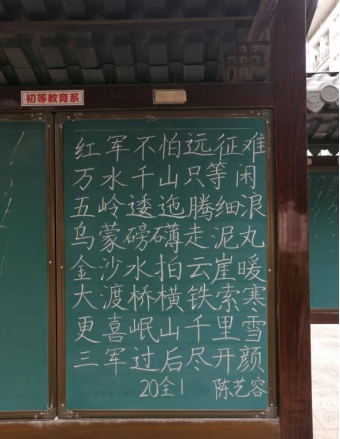 初等教育系
红军不怕远征难
万水千山只等闲
五岭逶迤腾细浪
乌蒙磅礴走泥丸
金沙水拍云崖暖
大渡桥横铁索寒
更喜岷山千里雪
三军过后尽开颜
20全1 陈艺容